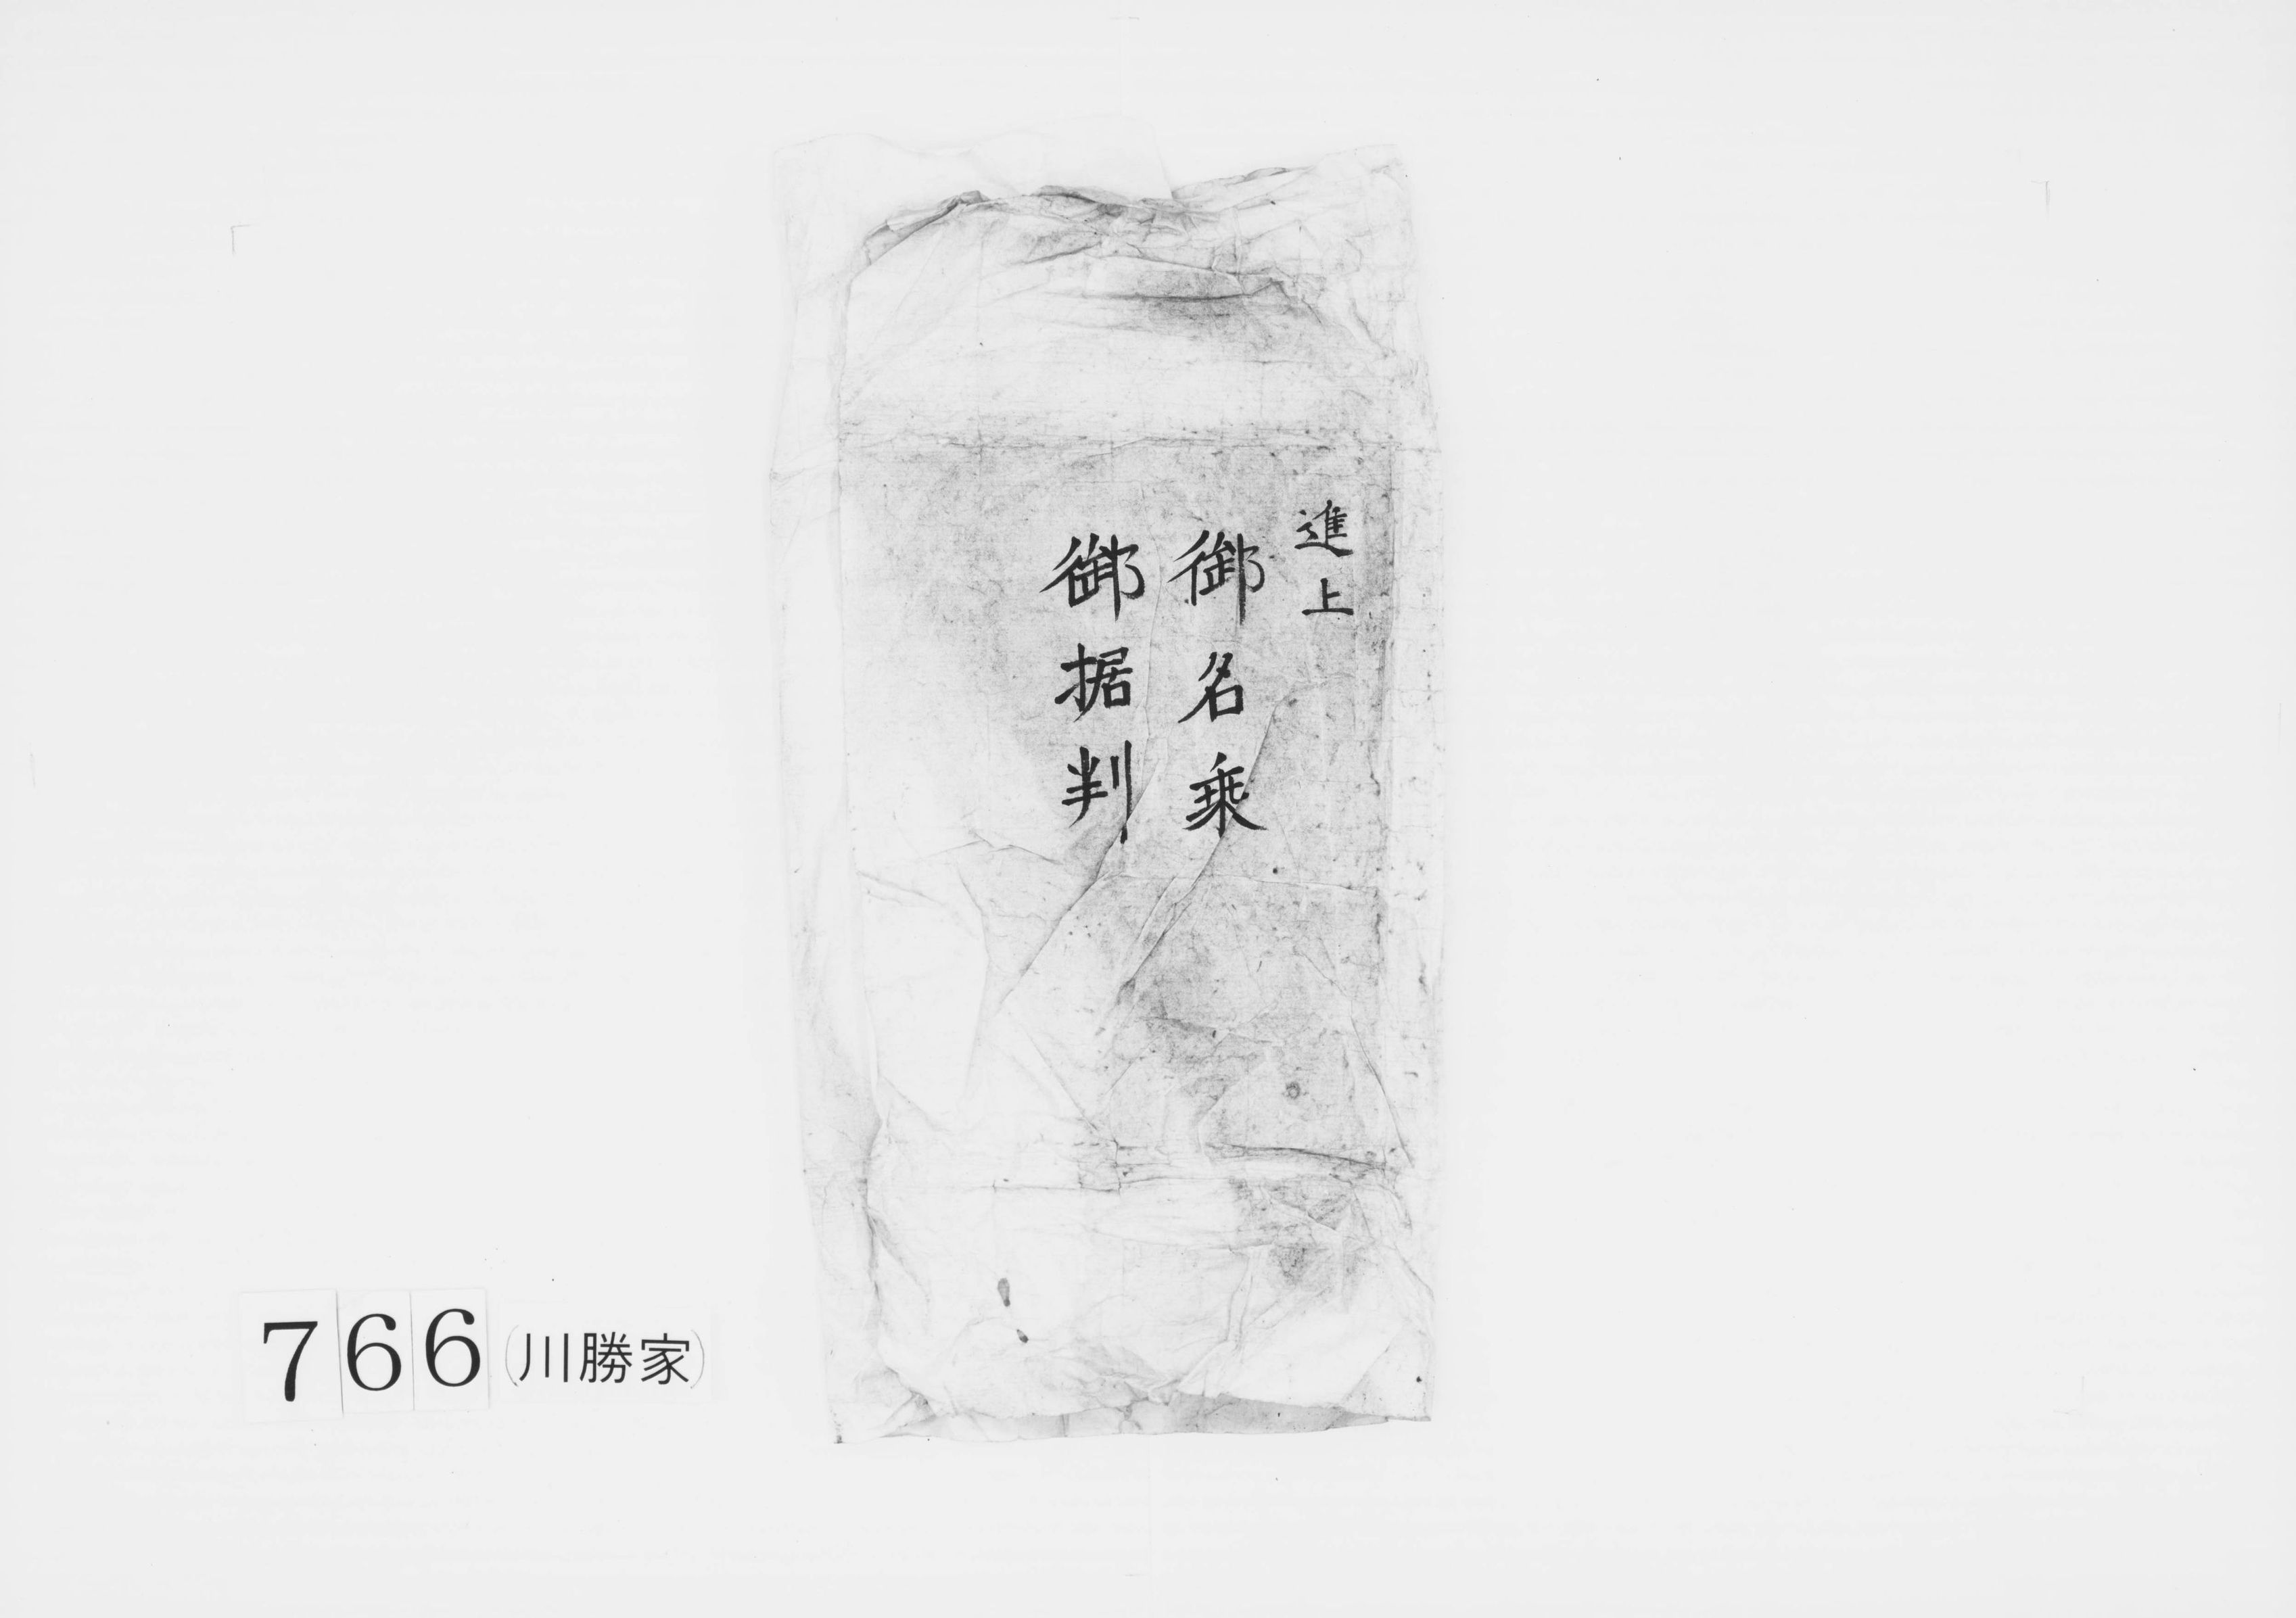 進上
御名乗
御据判
766(川勝家)